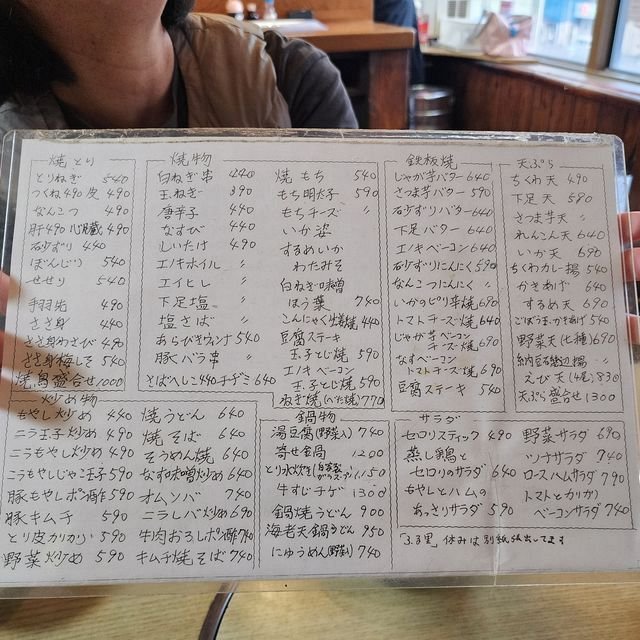 焼とり
とりねぎ 540
つくね 490 皮 490
なんこつ 490
肝 490 心臓 490
砂ずり 440
ぼんじり 540
せせり 540
手羽先 490
ささ身 440
ささ身わさび 490
ささ身梅しそ 540
焼鳥盛合せ 1000
焼物
白ねぎ串 440
玉ねぎ 390
唐辛子 440
なすび 440
しいたけ 490
エノキホイル 〃
エイヒレ 〃
下足塩 〃
塩さば 〃
あらびきウインナ 540
豚バラ串 〃
さばへしこ 490 チヂミ 640
焼もち 540
もち明太子 590
もちチーズ 〃
いか姿 〃
するめいか
わたみそ 〃
白ねぎ味噌
ほう葉 740
こんにゃく 440
豆腐ステーキ
玉子とじ焼 590
エノキベーコン
玉子とじ焼 590
ねぎ焼 770
鉄板焼
じゃが芋バター 640
さつま芋バター 590
砂ずりバター 640
下足バター 640
エノキベーコン 640
砂ずりにんにく 590
なんこつにんにく 〃
いかのピリ辛焼 690
トマトチーズ焼 640
じゃが芋ベーコン
チーズ焼 690
なすベーコン
トマトチーズ焼 690
豆腐ステーキ 540
天ぷら
ちくわ天 490
下足天 580
さつま芋天 〃
れんこん天 640
いか天 690
ちくわカレー揚 540
かきあげ 640
するめ天 690
ごぼう玉かきあげ 540
野菜天(七種) 690
納豆 揚 〃
えび天(4尾) 830
天ぷら盛合せ 1300
炒め物
もやし炒め 440
ニラ玉子炒め 490
ニラもやし炒め 490
ニラもやしじゃこ玉子 590
豚もやしポン酢 590
豚キムチ 590
とり皮カリカリ 590
野菜炒め 590
焼うどん 640
焼そば 640
そうめん焼 640
なす味噌炒め 640
オムソバ 740
ニラレバ炒め 690
牛肉おろしポン酢 740
キムチ焼そば 740
鍋物
湯豆腐(野菜入) 740
寄せ鍋 1200
とり水炊き 1,150
牛すじチゲ 1300
鍋焼うどん 900
海老天鍋うどん 950
にゅうめん(野菜入) 740
サラダ
セロリスティック 490
蒸し鶏と
セロリのサラダ 640
もやしとハムの
あっさりサラダ 590
野菜サラダ 690
ツナサラダ 740
ロースハムサラダ 790
トマトとカリカリ
ベーコンサラダ 740
「ふる里」休みは別紙